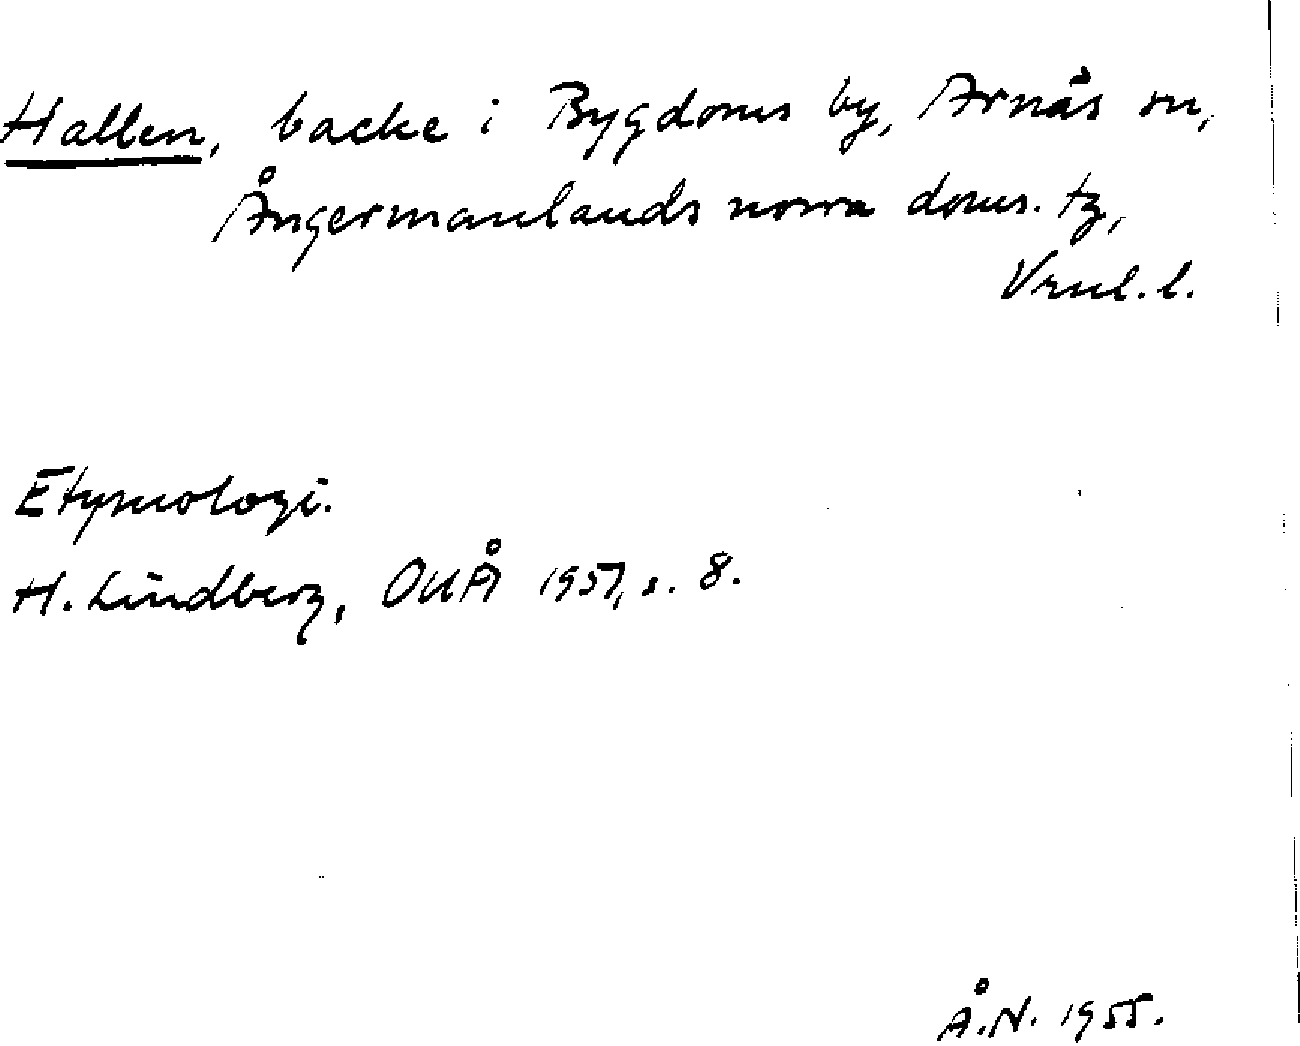 Hallen, backe i Bygdoms by, Arnäs sn,
Ångermanlands norra doms. tg,
Vrnl. l.
Etymologi.
H. Lindberg, OUÅ 1951, s. 8.
Å.N. 1955.